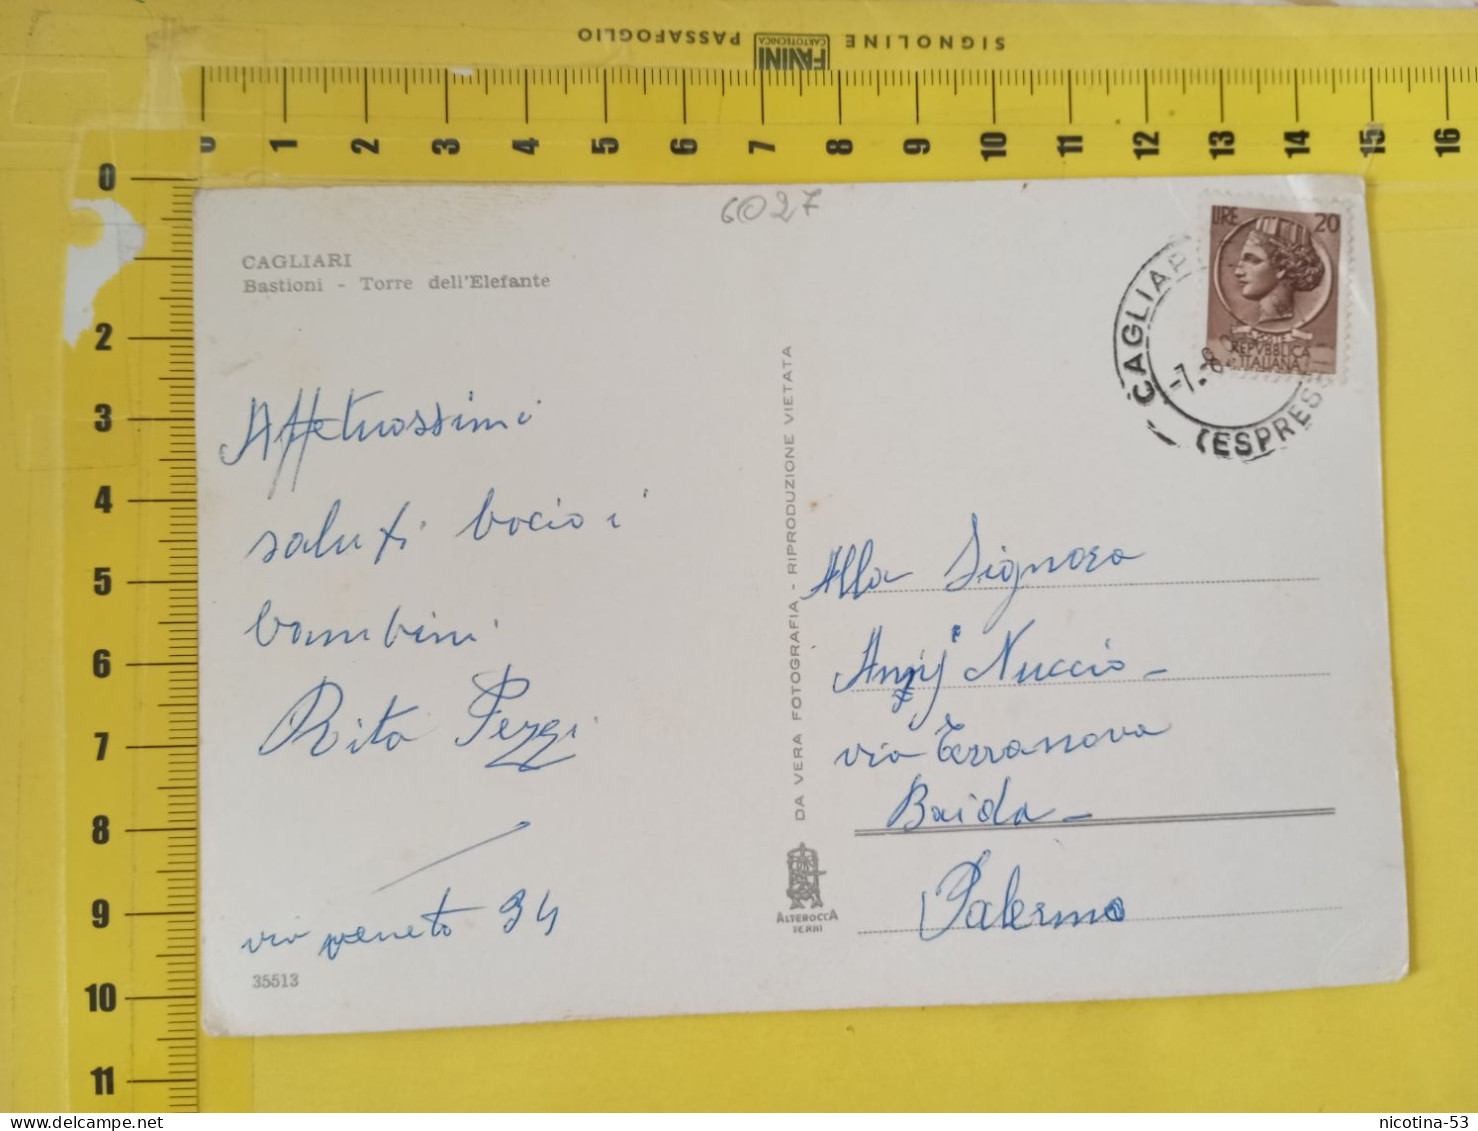 SIGNOLINE FAVINI CARTOTECNICA PASSAFOGLIO
0 1 2 3 4 5 6 7 8 9 10 11 12 13 14 15 16
0
2
3
4
5
6
7
8
9
10
11
6027
CAGLIARI
Bastioni - Torre dell'Elefante
Affettuossimi
saluti bacio i
bambini
Rita Pezzi
via veneto 34
35513
DA VERA FOTOGRAFIA - RIPRODUZIONE VIETATA
ALTEROCCA
TERNI
LIRE 20
POSTE
REPVBBLICA
ITALIANA
CAGLIAR
-7.8
(ESPRES
Alla Signora
Nuccio -
via Terranova
Baida -
Palermo
nicotina-53